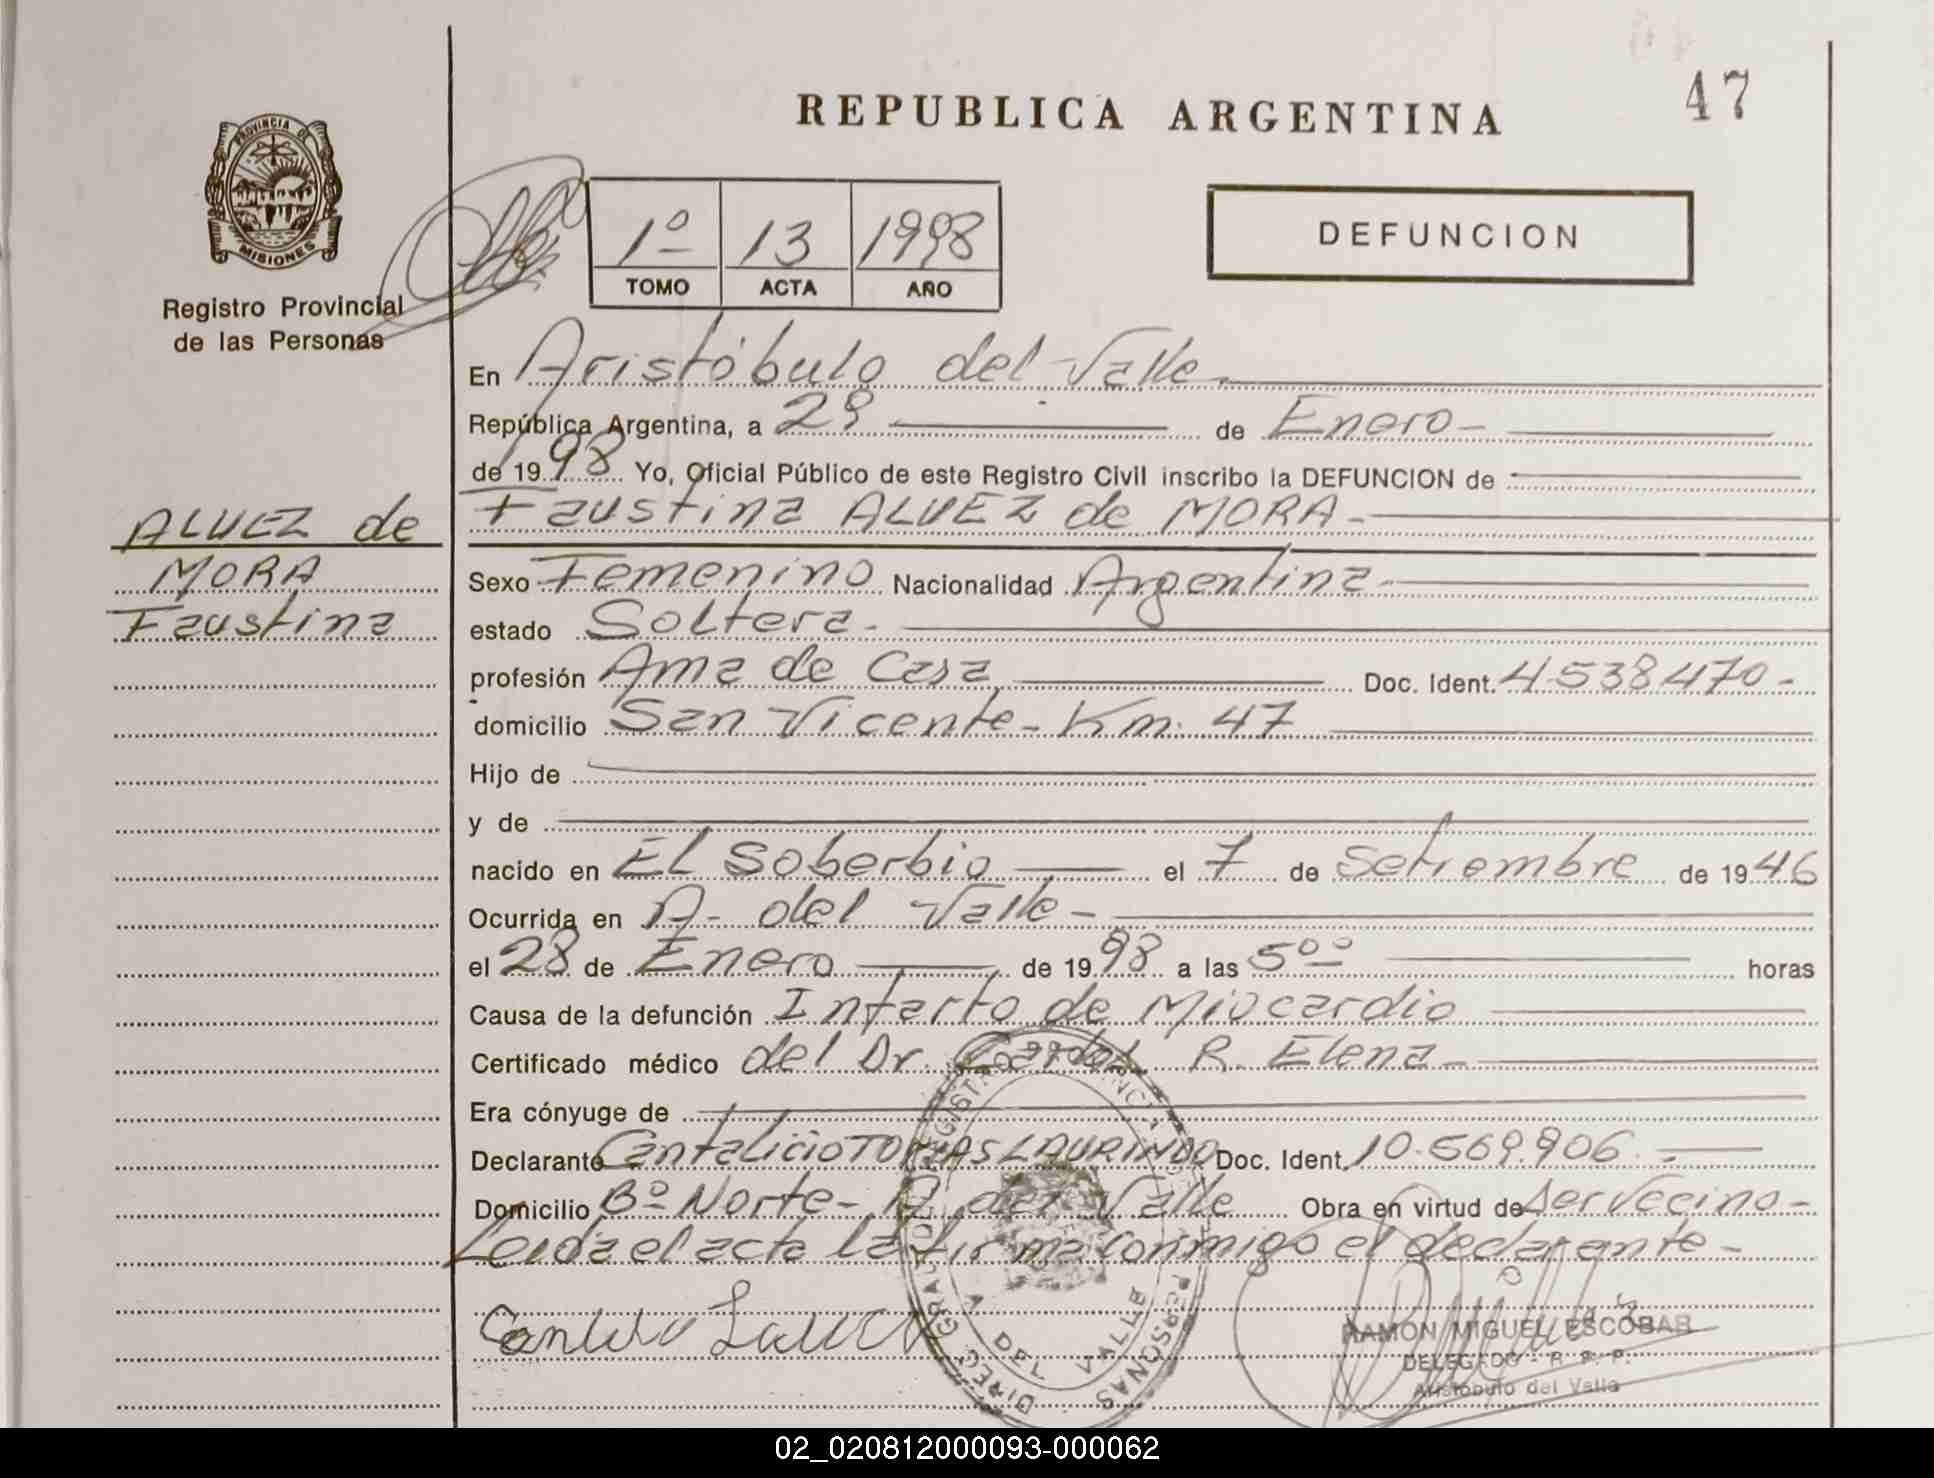 47
REPUBLICA ARGENTINA
PROVINCIA DE
MISIONES
Registro Provincial
de las Personas
1º 13 1998
TOMO ACTA AÑO
DEFUNCION
En Aristóbulo del Valle
República Argentina, a 28 de Enero
de 1998 Yo, Oficial Público de este Registro Civil inscribo la DEFUNCION de
Faustina ALVEZ de MORA
ALVEZ de
MORA
Faustina
Sexo Femenino Nacionalidad Argentina
estado Soltera
profesión Ama de Casa Doc. Ident. 4.538470
domicilio San Vicente - Km. 47
Hijo de
y de
nacido en El Soberbio el 7 de Setiembre de 1946
Ocurrida en A. del Valle
el 28 de Enero de 1998 a las 5ºº horas
Causa de la defunción Infarto de Miocardio
Certificado médico del Dr. R. Elena
Era cónyuge de
Declarante Cantalicio TOMAS LAURINDO Doc. Ident. 10.569.906
Domicilio Bº Norte - A. del Valle Obra en virtud de Ser Vecino
Leida el acta la firma conmigo el declarante
RAMON MIGUEL ESCOBAR
DELEGADO - R. P. P.
Aristóbulo del Valle
A. DEL VALLE
02_020812000093-000062